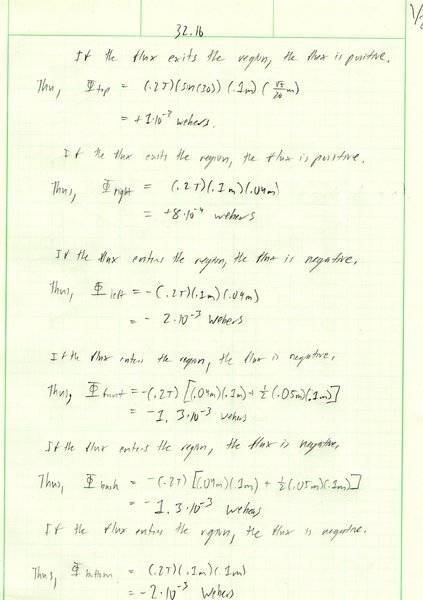 32.16
If the flux exits the region, the flux is positive.
Thus, Φ top = (.2T)(sin(30))(.1m)(√5/20 m)
= +1·10⁻³ webers.
If the flux exits the region, the flux is positive.
Thus, Φ right = (.2T)(.1m)(.04m)
= +8·10⁻⁴ webers
If the flux enters the region, the flux is negative.
Thus, Φ left = -(.2T)(.1m)(.04m)
= - 2·10⁻³ webers
If the flux enters the region, the flux is negative.
Thus, Φ front = -(.2T)[(.04m)(.1m) + ½(.05m)(.1m)]
= -1.3·10⁻³ webers
If the flux enters the region, the flux is negative.
Thus, Φ back = -(.2T)[(.04m)(.1m) + ½(.05m)(.1m)]
= -1.3·10⁻³ webers
If the flux enters the region, the flux is negative.
Thus, Φ bottom = (.2T)(.1m)(.1m)
= -2·10⁻³ webers